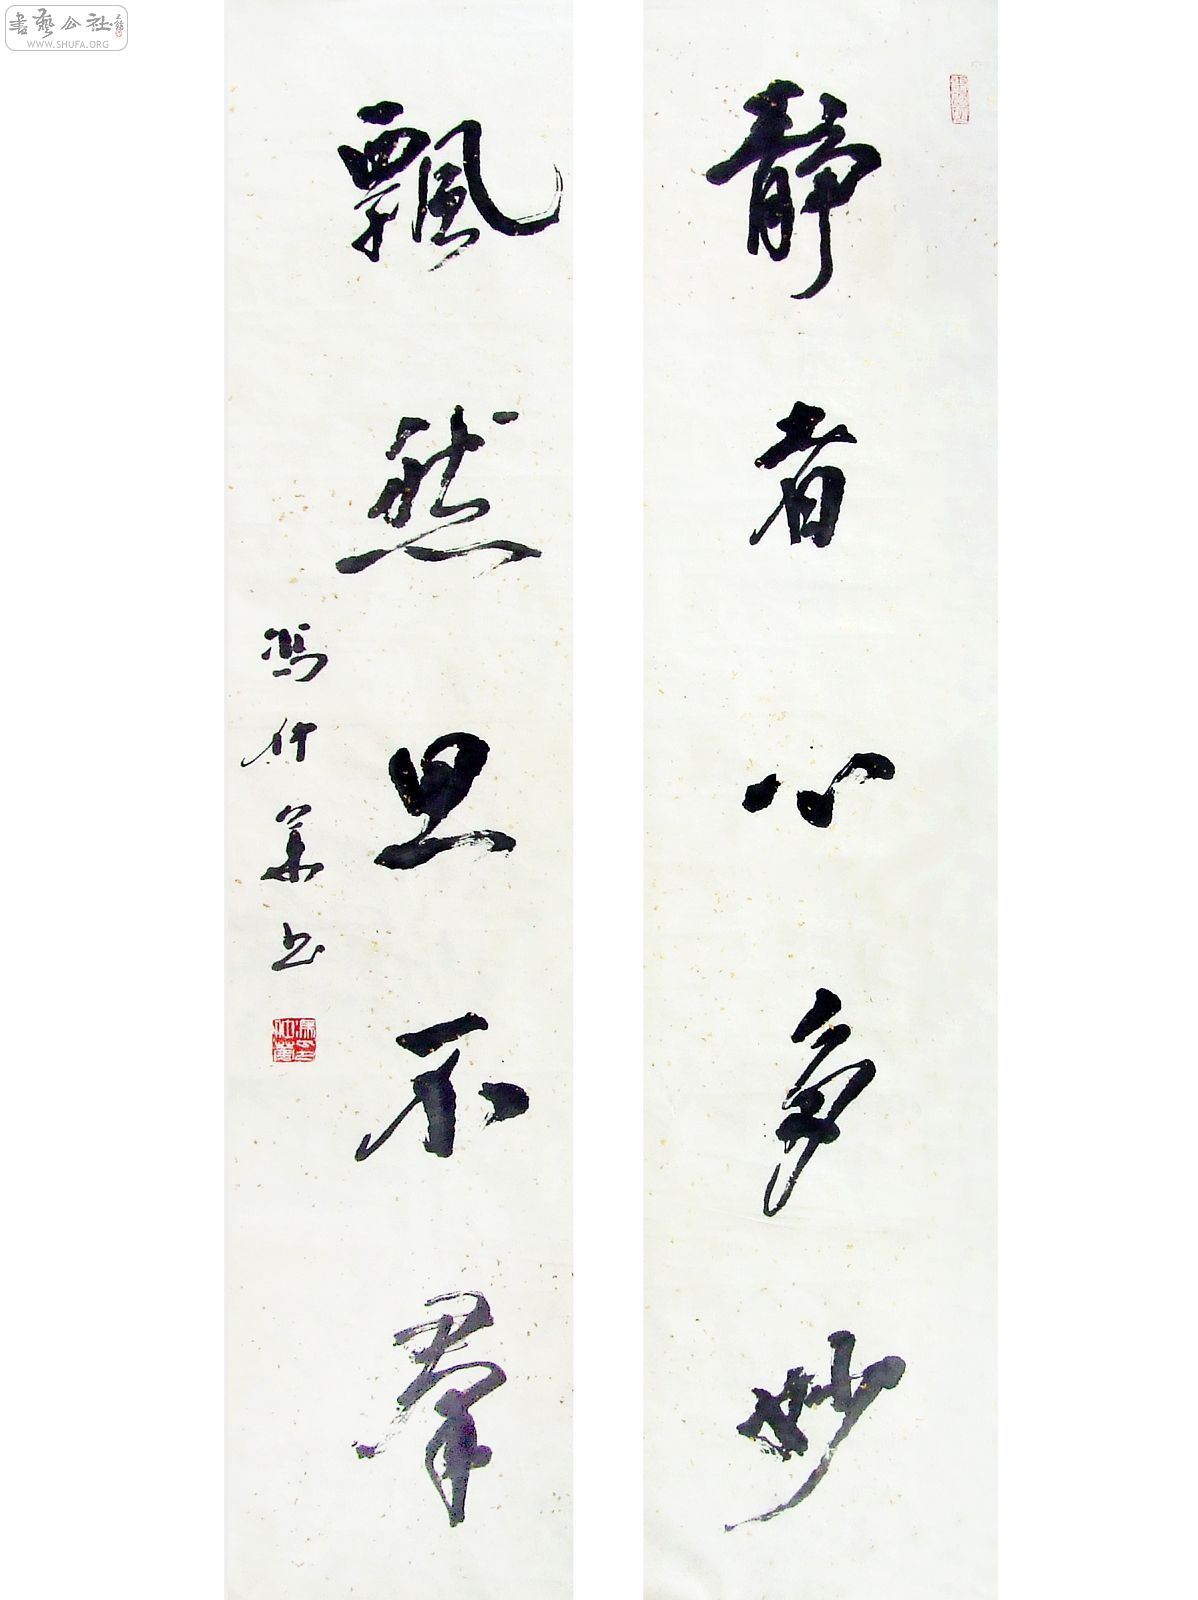 書藝公社
WWW.SHUFA.ORG
靜者心多妙
飄然思不羣
馮仲華书